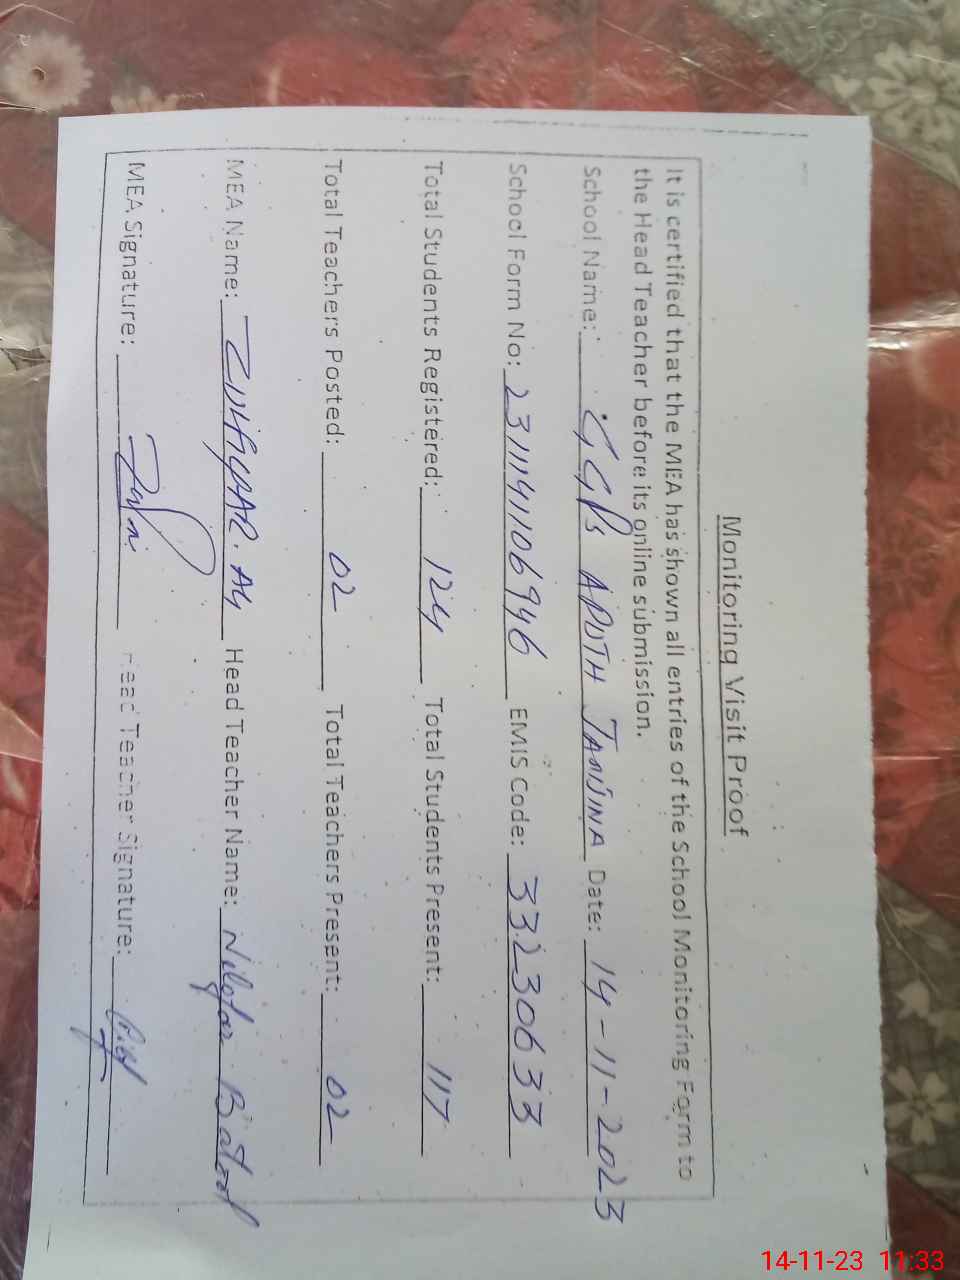 Monitoring Visit Proof
It is certified that the MEA has shown all entries of the School Monitoring Form to
the Head Teacher before its online submission.
School Name: GGPS ADOTH JANJNA Date: 14-11-2023
School Form No: 231114106946 EMIS Code: 33230633
Total Students Registered: 124 Total Students Present: 117
Total Teachers Posted: 02 Total Teachers Present: 02
MEA Name: ZULFIQAR. Ali Head Teacher Name: Nilofar Batool
MEA Signature: Head Teacher Signature:
14-11-23 11:33